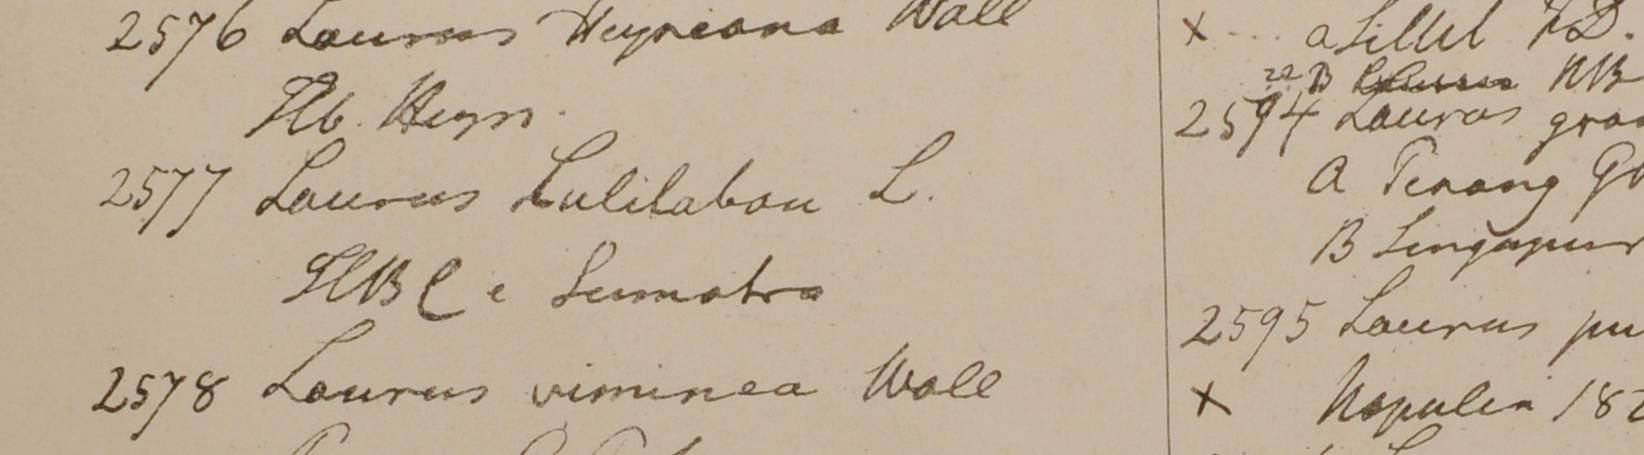 2576 Laurus Heyneana Wall
Hb. Heyn.
2577 Laurus Lulilaban L.
HBC e Sumatra
2578 Laurus viminea Wall
x a Sillet FD.
B HB
2594 Laurus
A Penang
B Singapur
2595 Laurus
x Napalia 182